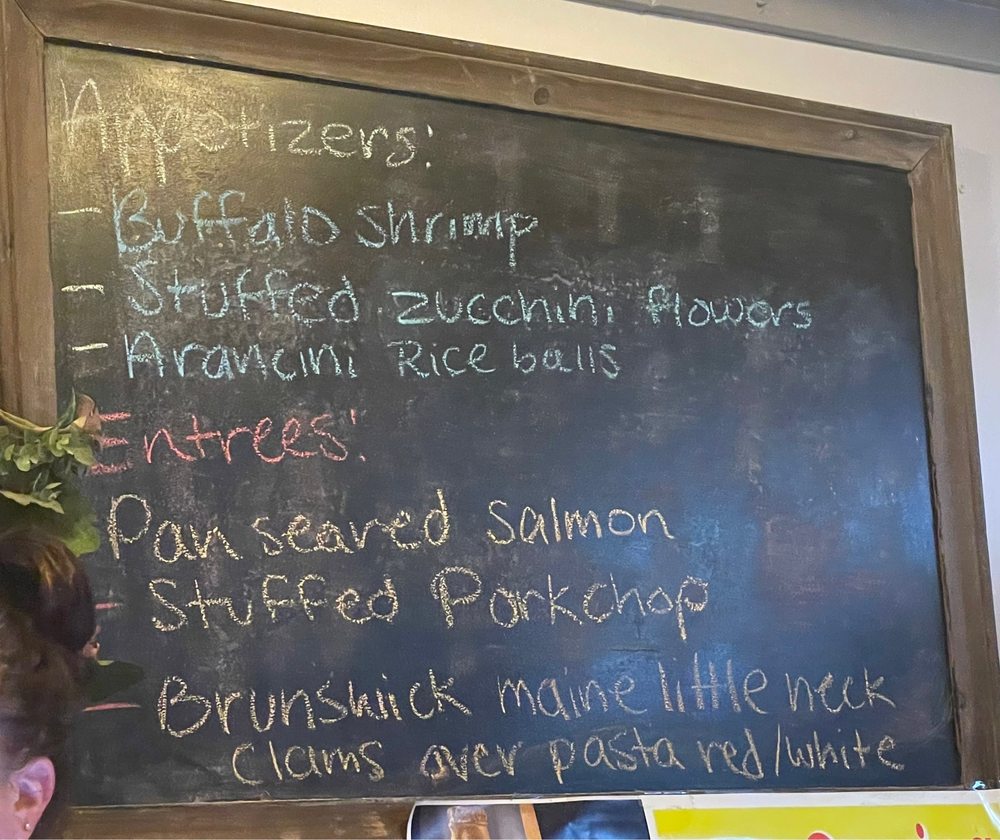 Appetizers:
- Buffalo shrimp
- Stuffed zucchini flowers
- Arancini Rice balls
Entrees:
Pan seared Salmon
- Stuffed Porkchop
- Brunswick maine little neck
clams over pasta red/white